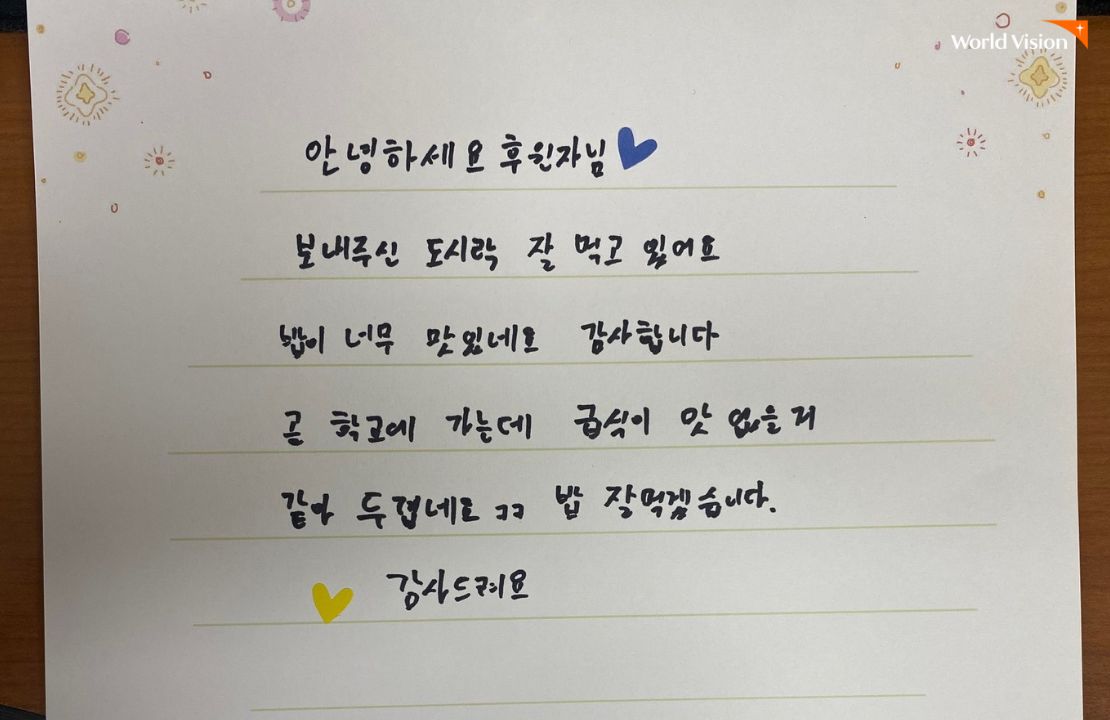 World Vision
안녕하세요 후원자님
보내주신 도시락 잘 먹고 있어요
밥이 너무 맛있네요 감사합니다
곧 학교에 가는데 급식이 맛 없을 거
같아 두렵네요 ㅋㅋ 밥 잘먹겠습니다.
감사드려요